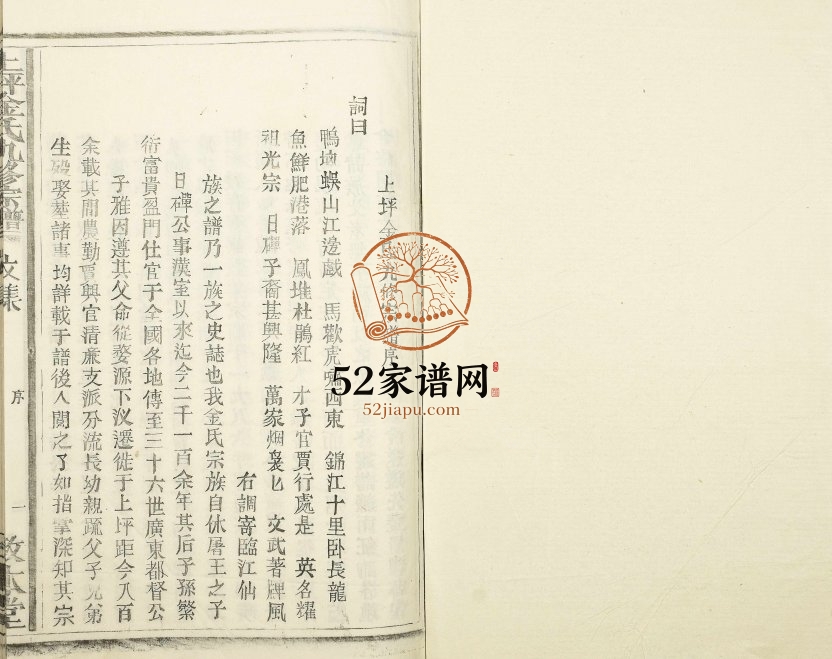 上坪金氏九修宗譜序
詞曰
鴨塢蜈山江邊戯 馬歡虎嘯西東 錦江十里卧長龍
魚鮮肥港落 鳳堆杜鵑紅 才子官賈行處是 英名耀
祖光宗 日磾子裔甚興隆 萬家烟裊七 文武著牌風
右調寄臨江仙
族之譜乃一族之史誌也我金氏宗族自休屠王之子
日磾公事漢室以來迄今二千一百余年其后子孫繁
衍富貴盈門仕官于全國各地傳至三十六世廣東都督公
子雅因遵其父命從婺源下汊遷徙于上坪距今八百
余載其間農勤賈興官清亷支派分流長幼親疏父子兄第
生殁娶塟諸事均詳載于譜後人閱之了如指掌深知其宗
上坪金氏九修宗譜 文集 序 一 敦本堂
52家谱网
52jiapu.com